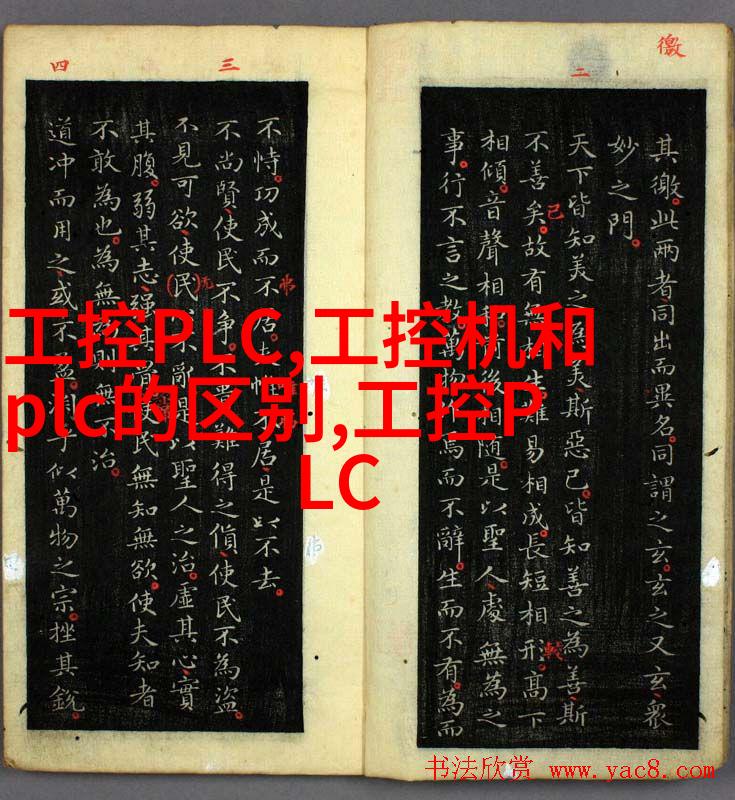 工控PLC,工控机和
plc的区别,工控P
LC
徼
二
其徼。此兩者同出而異名。同謂之玄。玄之又玄。衆
妙之門。
天下皆知美之為美。斯惡已。皆知善之為善。斯
不善矣。故有無相生。難易相成。長短相形。高下
相傾。音聲相和。前後相隨。是以聖人處無為之
事。行不言之教。萬物作焉而不辭。生而不有。為而
三
不恃。功成而不居。夫惟不居。是以不去。
不尚賢。使民不争。不貴難得之貨。使民不為盜。
不見可欲。使民不亂。是以聖人之治。虛其心。實
其腹。弱其志。强其骨。使民無知無欲。使夫知者
不敢為也。為無為則無不治。
四
道冲而用之。或不盈。淵乎似萬物之宗。挫其銳。
书法欣赏 www.yac8.com